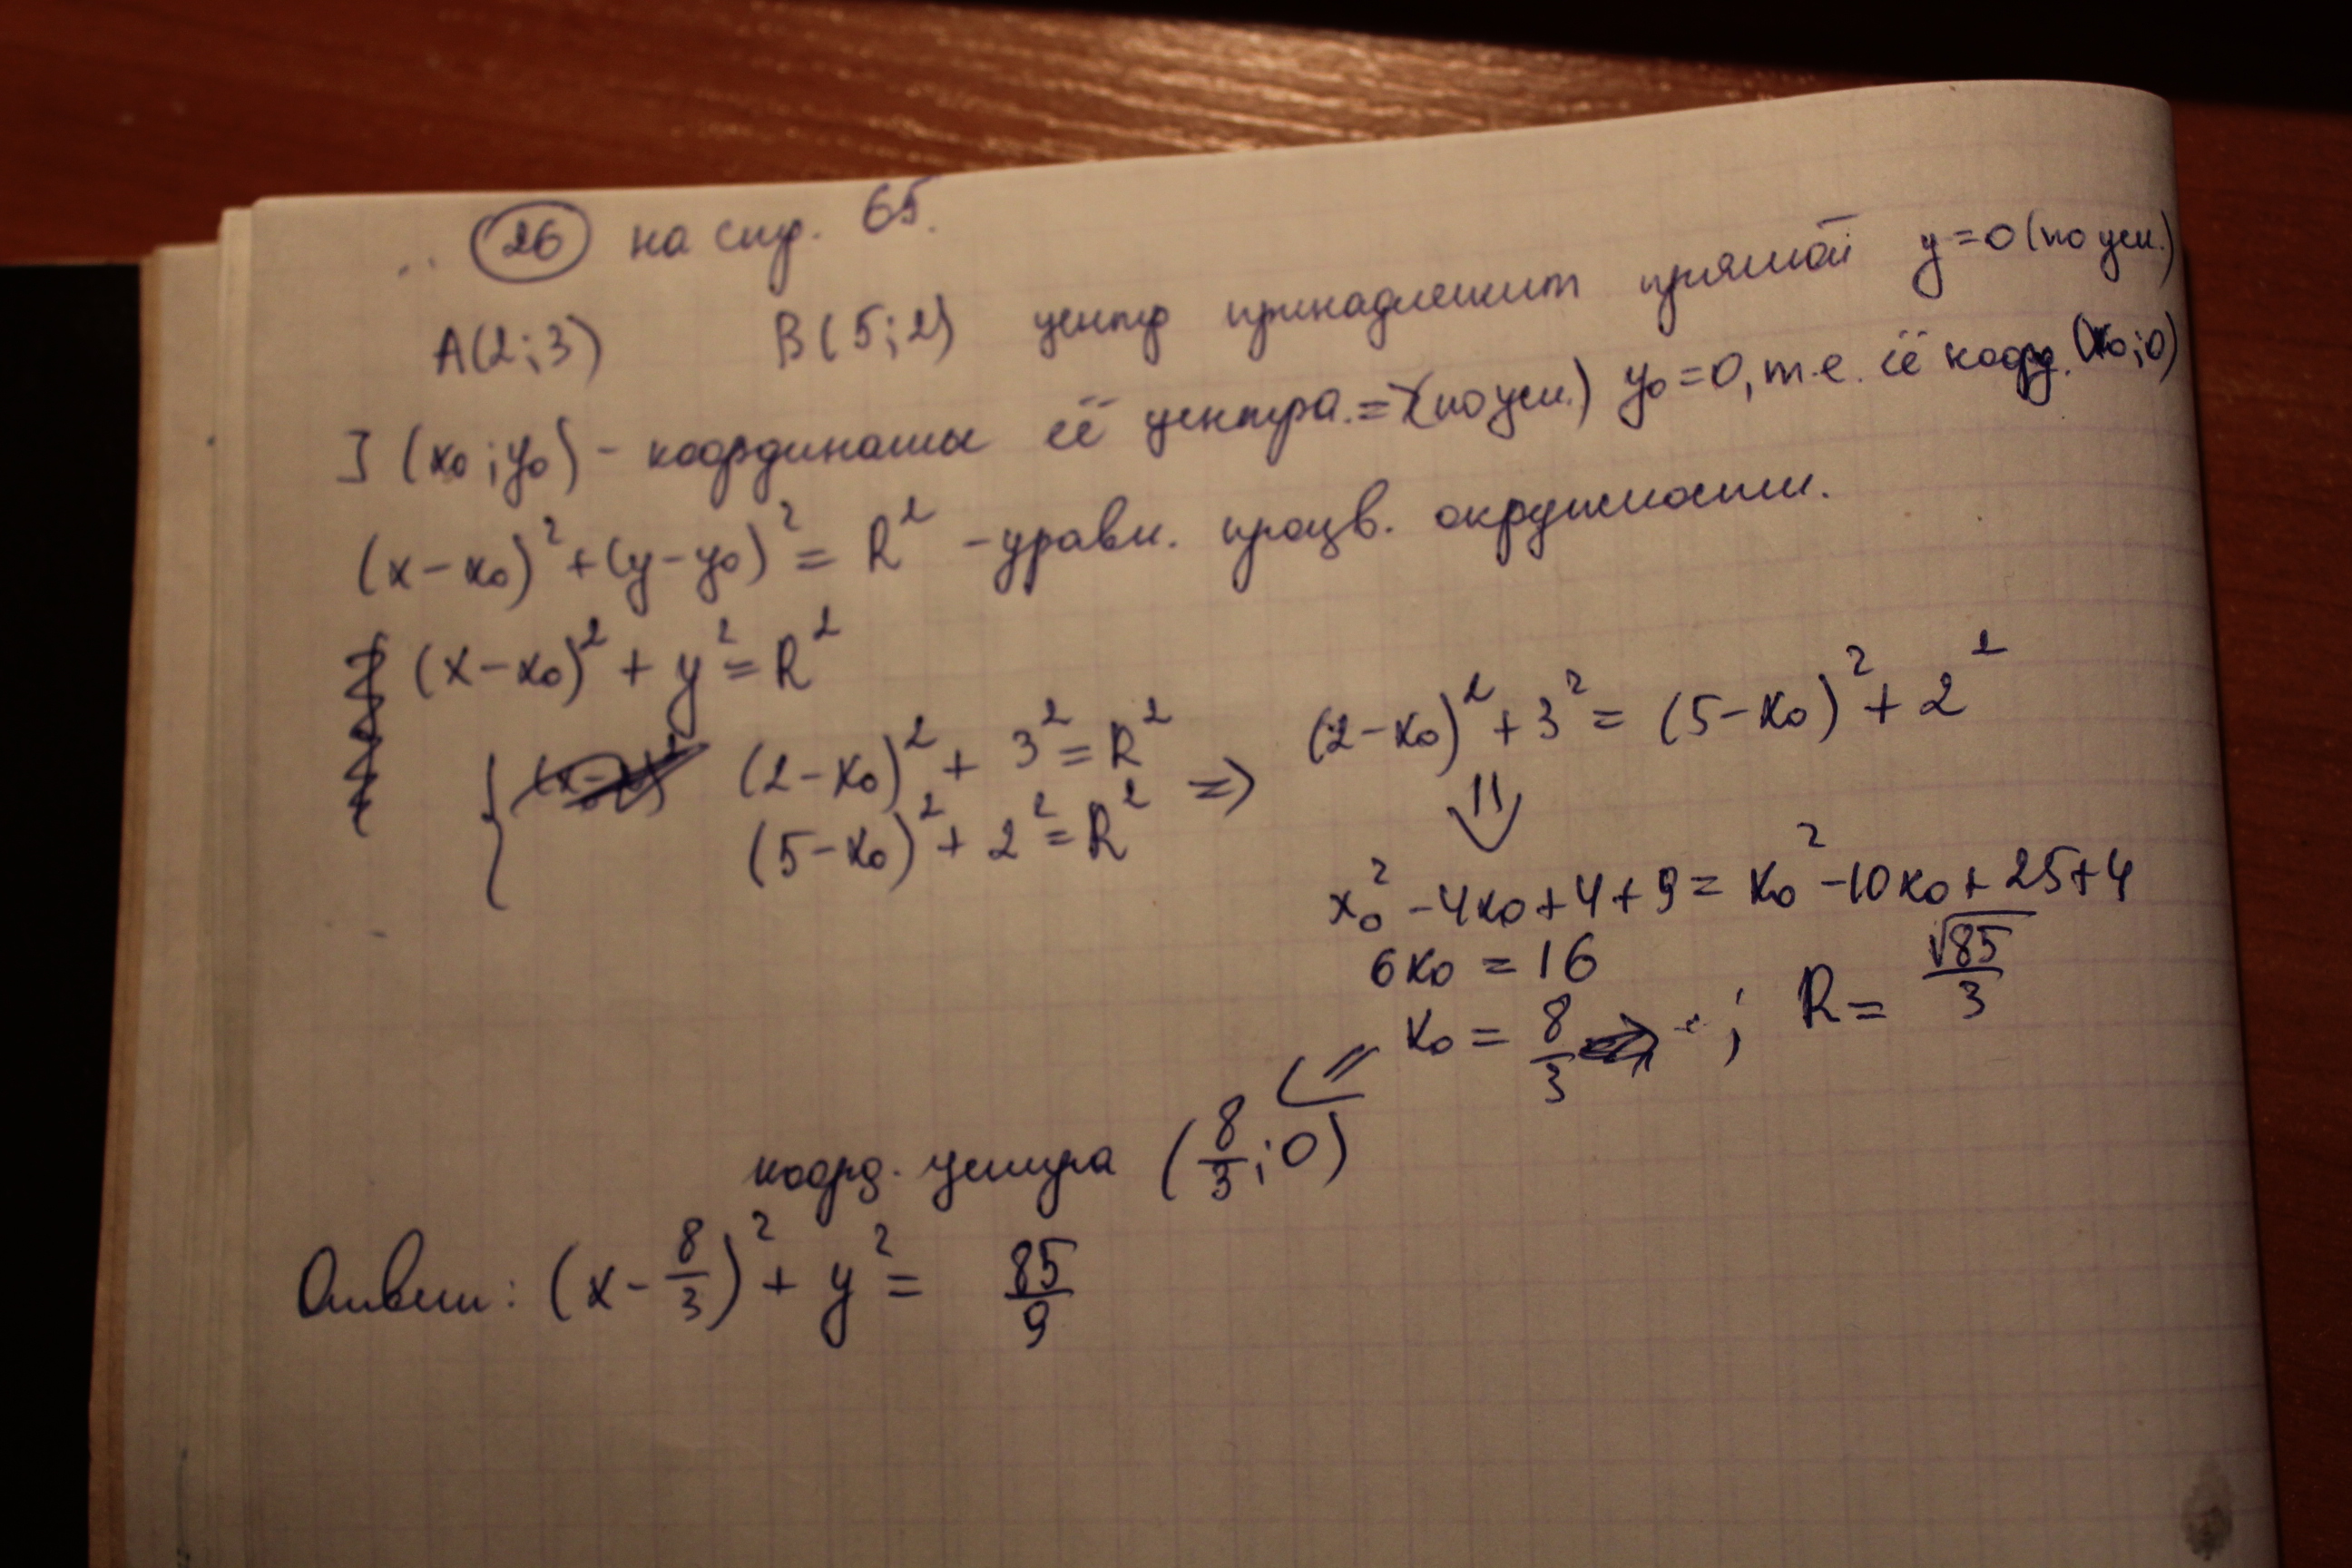 26 на стр. 65.
A(2;3) B(5;2) центр принадлежит прямой y=0 (по усл.)
] (x₀;y₀) - координаты её центра. => (по усл.) y₀=0, т.е. её коорд. (x₀;0)
(x-x₀)²+(y-y₀)²=R² - уравн. произв. окружности.
(x-x₀)²+y²=R²
{ (2-x₀)²+3²=R² => (2-x₀)²+3²=(5-x₀)²+2²
(5-x₀)²+2²=R² ⇓
x₀²-4x₀+4+9=x₀²-10x₀+25+4
6x₀=16
x₀=8/3; R=√85/3
коорд. центра (8/3;0)
Ответ: (x-8/3)²+y²=85/9